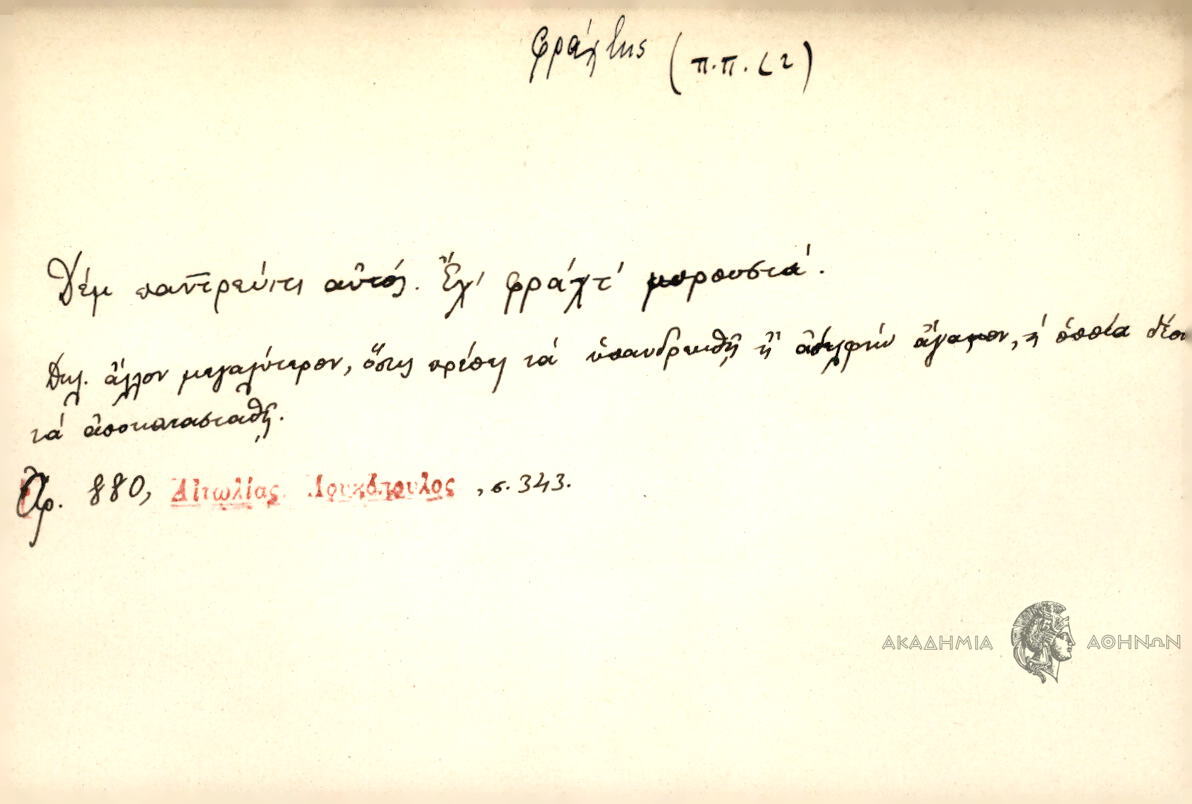 φράχτης (π.π. 42)
Δέμ παντρεύιτι αὐτός. Ἔχ' φράχτ' μπρουστά.
Δηλ. ἄλλον μεγαλύτερον, ὅστις πρέπει νά ὑπανδρευθῇ ἢ ἀδελφήν ἄγαμον, ἡ ὁποία δέον
νά ἀποκατασταθῇ.
Ἀρ. 880, Αἰτωλίας Λουκόπουλος, σ. 343.
ΑΚΑΔΗΜΙΑ ΑΘΗΝΩΝ